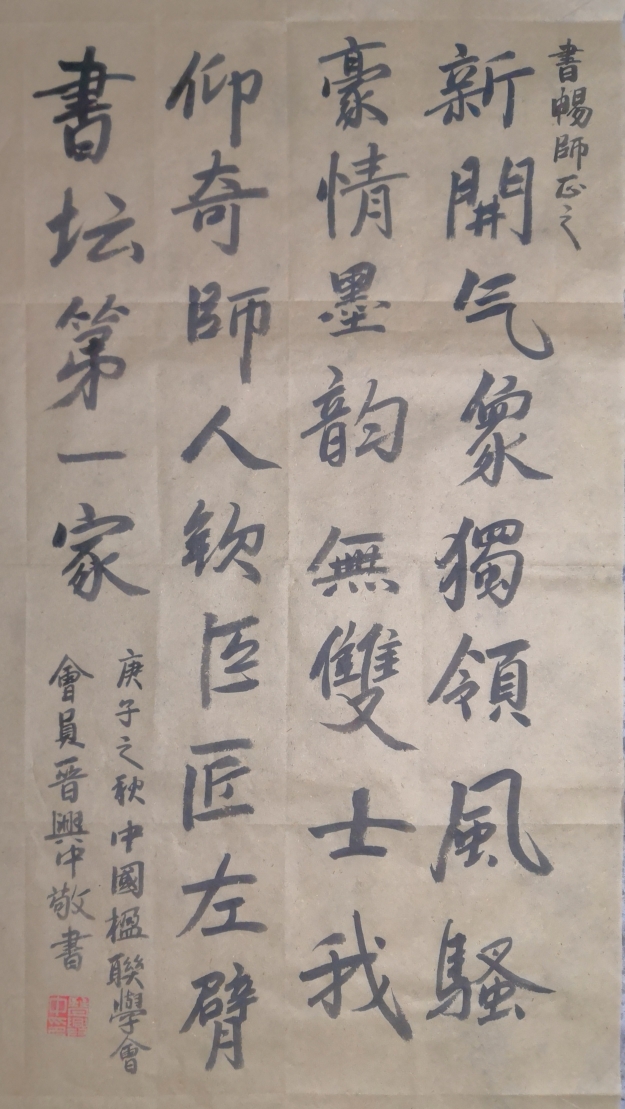 書暢師正之
新開气象獨領風騷
豪情墨韵無雙士我
仰奇師人欽巨匠左臂
書坛第一家
庚子之秋中國楹聯學會
會員晉興中敬書